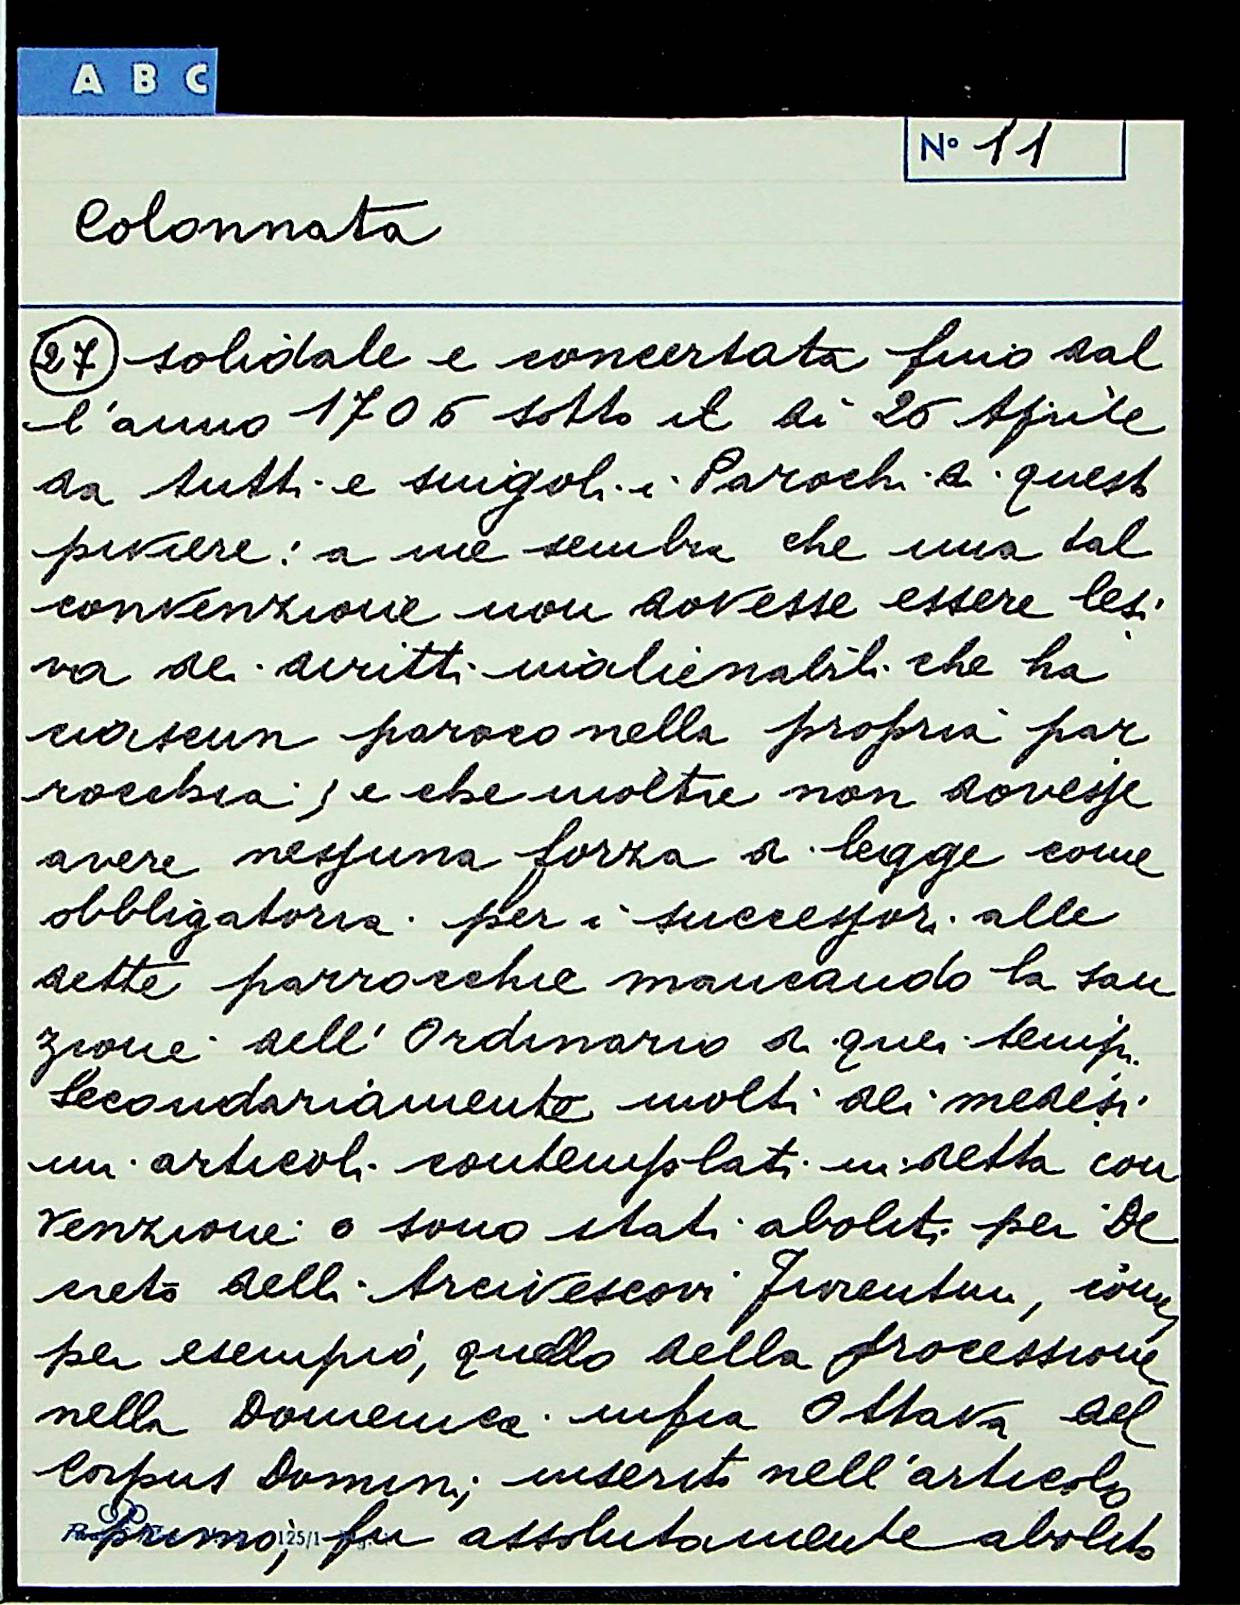 A B C
Nº 11
Colonnata
27 solidale e concertata fino dal
l'anno 1706 sotto il di 26 Aprile
da tutti e singoli i Parochi di questo
piviere: a me sembra che una tal
convenzione non dovesse essere lesi
va dei diritti inalienabili che ha
ciascun paroco nella propria par
rocchia; e che inoltre non dovesse
avere nessuna forza di legge come
obbligatoria per i successori alle
dette parrocchie mancando la san
zione dell' Ordinario di quei tempi.
Secondariamente molti dei medesi
mi articoli contemplati in detta con
venzione o sono stati aboliti per De
creto delli Arcivescovi Fiorentini, come,
per esempio, quello della processione
nella Domenica infra Ottava del
Corpus Domini; inserito nell'articolo
primo; fu assolutamente abolito
125/1